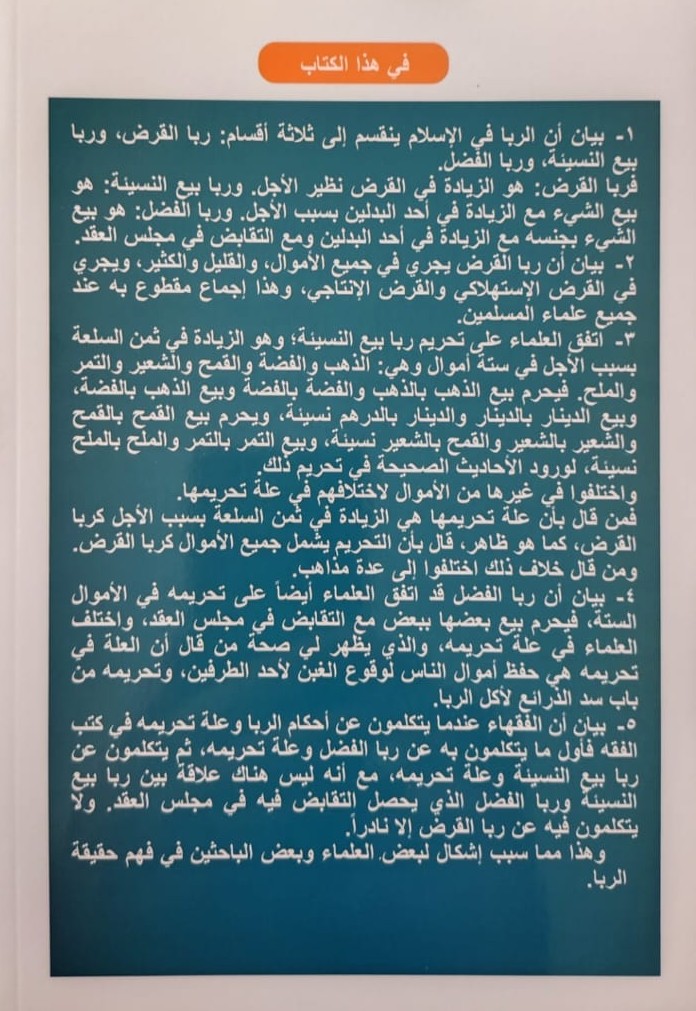 في هذا الكتاب
١- بيان أن الربا في الإسلام ينقسم إلى ثلاثة أقسام: ربا القرض، وربا
بيع النسيئة، وربا الفضل.
فربا القرض: هو الزيادة في القرض نظير الأجل. وربا بيع النسيئة: هو
بيع الشيء مع الزيادة في أحد البدلين بسبب الأجل. وربا الفضل: هو بيع
الشيء بجنسه مع الزيادة في أحد البدلين ومع التقابض في مجلس العقد.
٢- بيان أن ربا القرض يجري في جميع الأموال، والقليل والكثير، ويجري
في القرض الإستهلاكي والقرض الإنتاجي، وهذا إجماع مقطوع به عند
جميع علماء المسلمين.
٣- اتفق العلماء على تحريم ربا بيع النسيئة؛ وهو الزيادة في ثمن السلعة
بسبب الأجل في ستة أموال وهي: الذهب والفضة والقمح والشعير والتمر
والملح. فيحرم بيع الذهب بالذهب والفضة بالفضة وبيع الذهب بالفضة،
وبيع الدينار بالدينار والدينار بالدرهم نسيئة، ويحرم بيع القمح بالقمح
والشعير بالشعير والقمح بالشعير نسيئة، وبيع التمر بالتمر والملح بالملح
نسيئة، لورود الأحاديث الصحيحة في تحريم ذلك.
واختلفوا في غيرها من الأموال لاختلافهم في علة تحريمها.
فمن قال بأن علة تحريمها هي الزيادة في ثمن السلعة بسبب الأجل كربا
القرض، كما هو ظاهر، قال بأن التحريم يشمل جميع الأموال كربا القرض.
ومن قال خلاف ذلك اختلفوا إلى عدة مذاهب.
٤- بيان أن ربا الفضل قد اتفق العلماء أيضاً على تحريمه في الأموال
الستة، فيحرم بيع بعضها ببعض مع التقابض في مجلس العقد، واختلف
العلماء في علة تحريمه، والذي يظهر لي صحة من قال أن العلة في
تحريمه هي حفظ أموال الناس لوقوع الغبن لأحد الطرفين، وتحريمه من
باب سد الذرائع لأكل الربا.
٥- بيان أن الفقهاء عندما يتكلمون عن أحكام الربا وعلة تحريمه في كتب
الفقه فأول ما يتكلمون به عن ربا الفضل وعلة تحريمه، ثم يتكلمون عن
ربا بيع النسيئة وعلة تحريمه، مع أنه ليس هناك علاقة بين ربا بيع
النسيئة وربا الفضل الذي يحصل التقابض فيه في مجلس العقد. ولا
يتكلمون فيه عن ربا القرض إلا نادراً.
وهذا مما سبب إشكال لبعض العلماء وبعض الباحثين في فهم حقيقة
الربا.